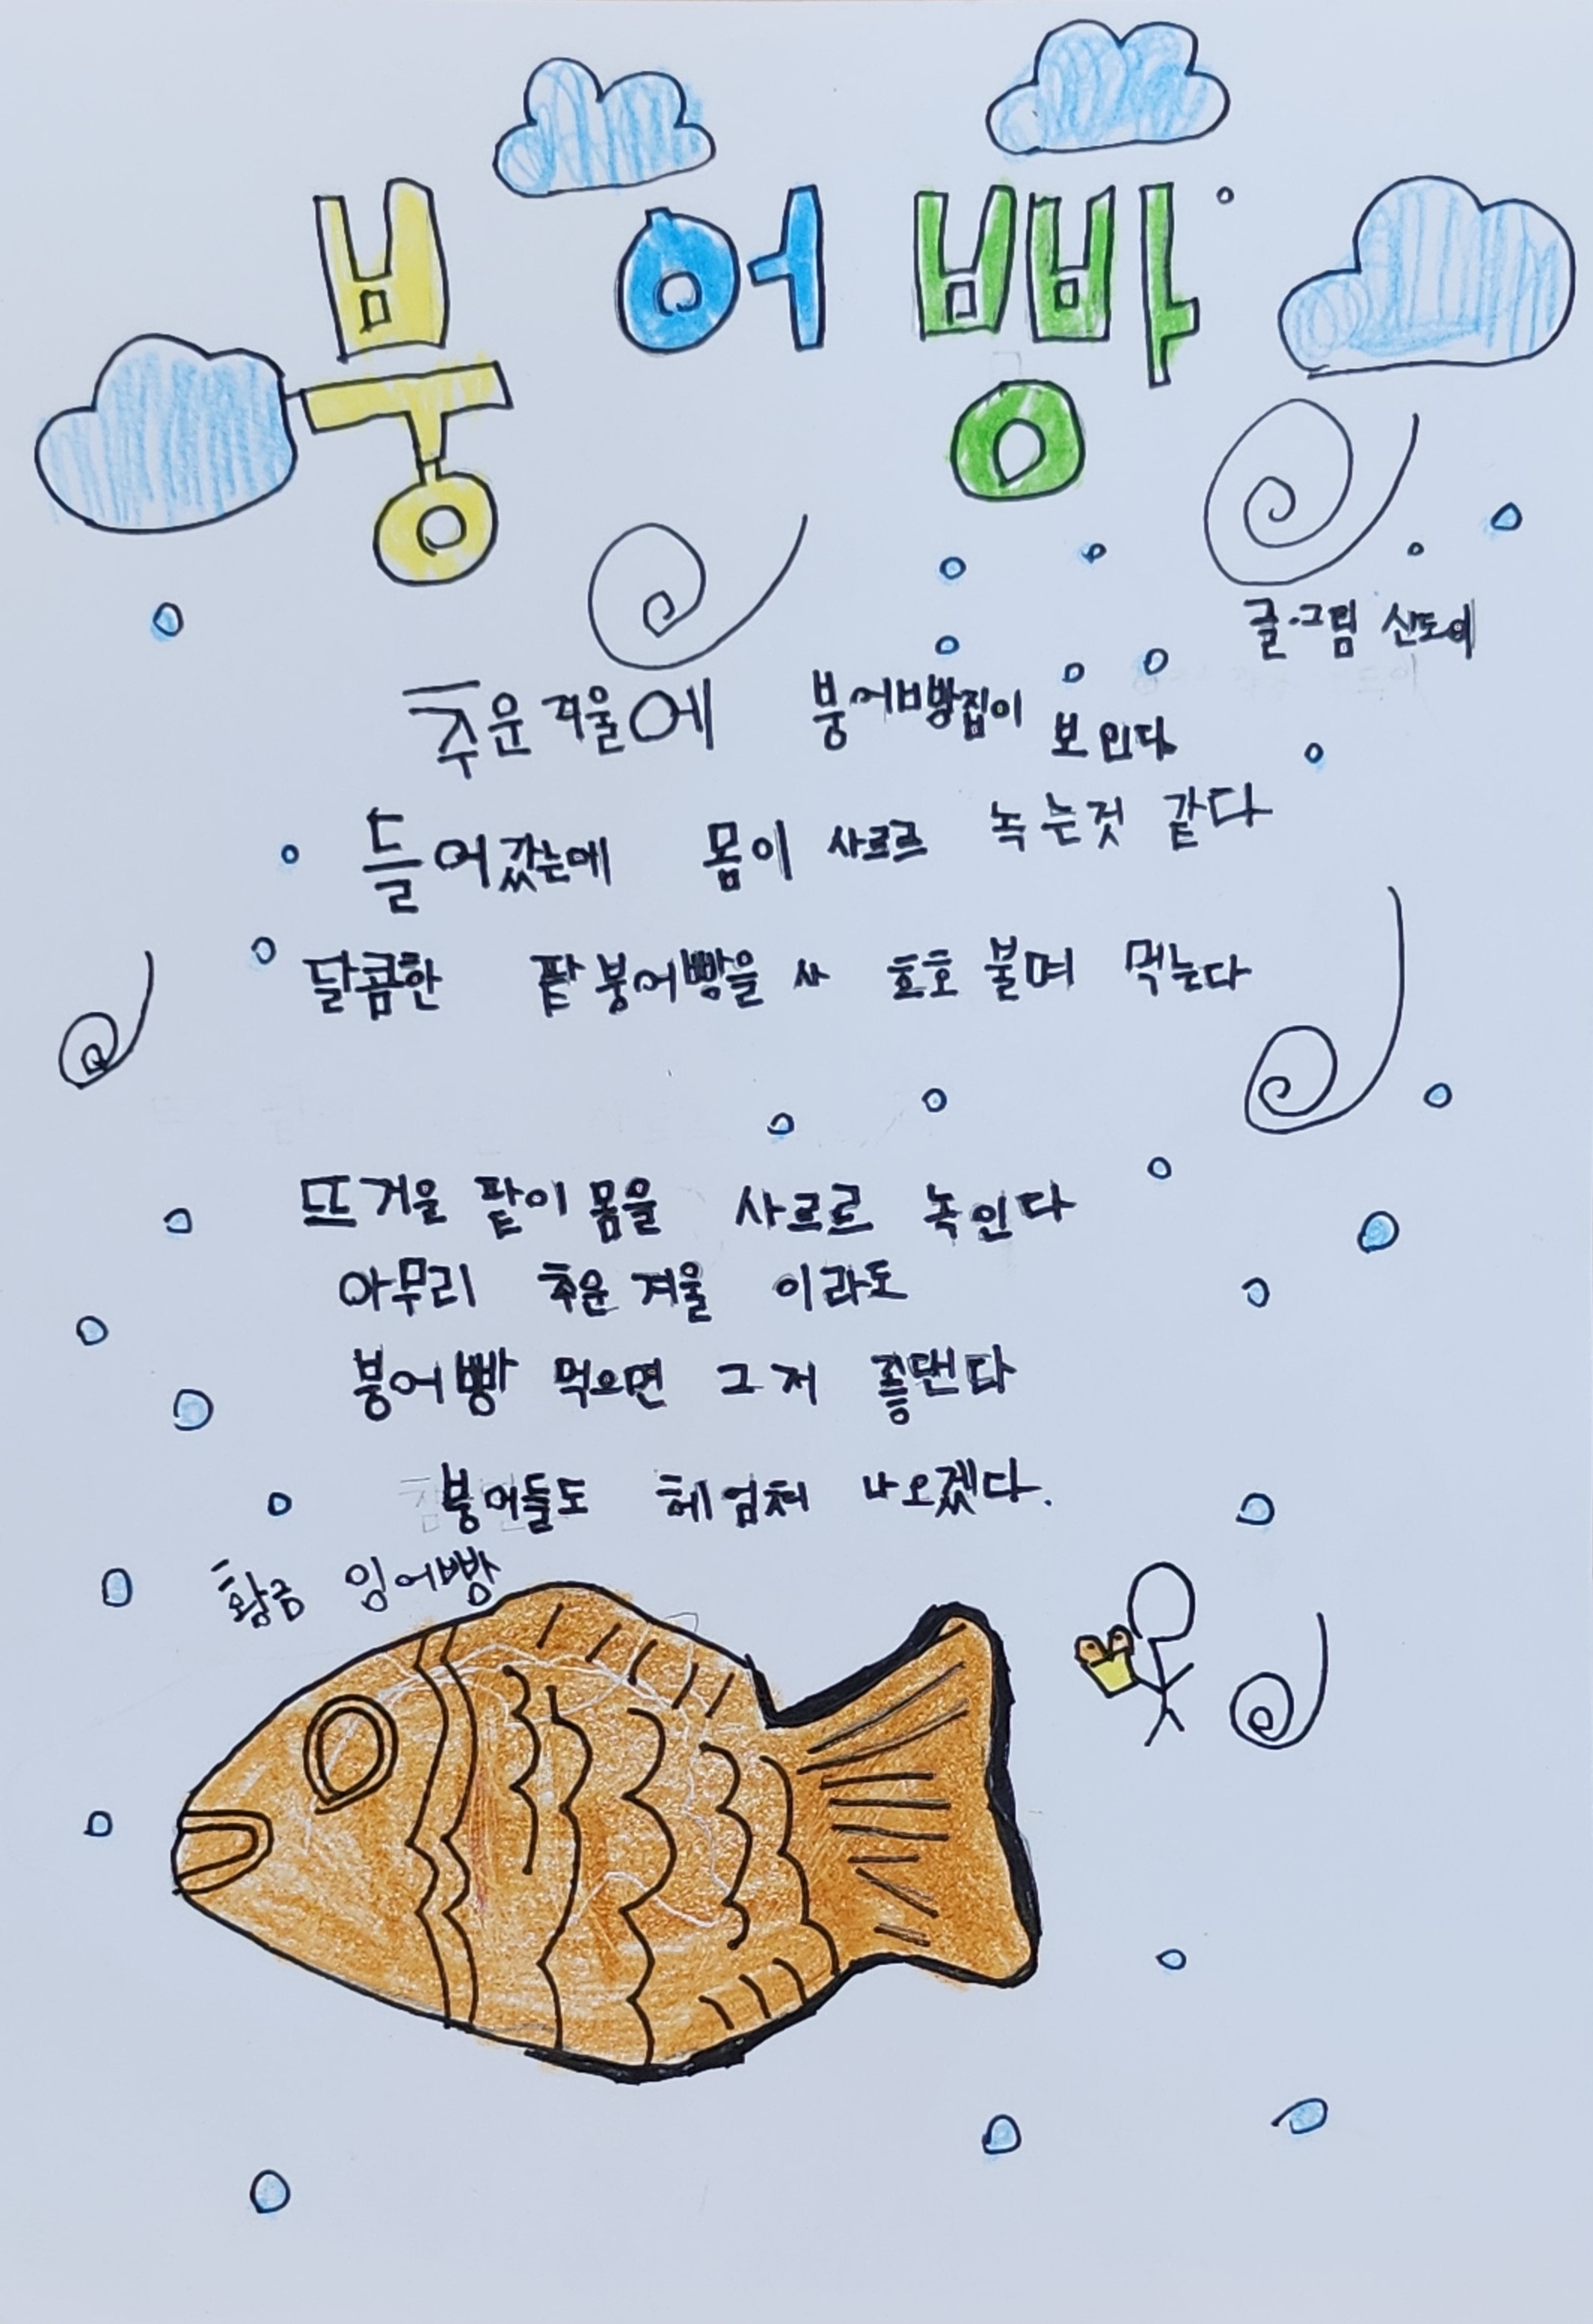 붕어빵
글·그림 신도이
추운겨울에 붕어빵집이 보인다
들어갔는데 몸이 사르르 녹는것 같다
달콤한 팥붕어빵을 사 호호 불며 먹는다
뜨거울 팥이 몸을 사르르 녹인다
아무리 추운 겨울 이라도
붕어빵 먹으면 그저 좋댄다
붕어들도 헤엄쳐 나오겠다.
황금 잉어빵